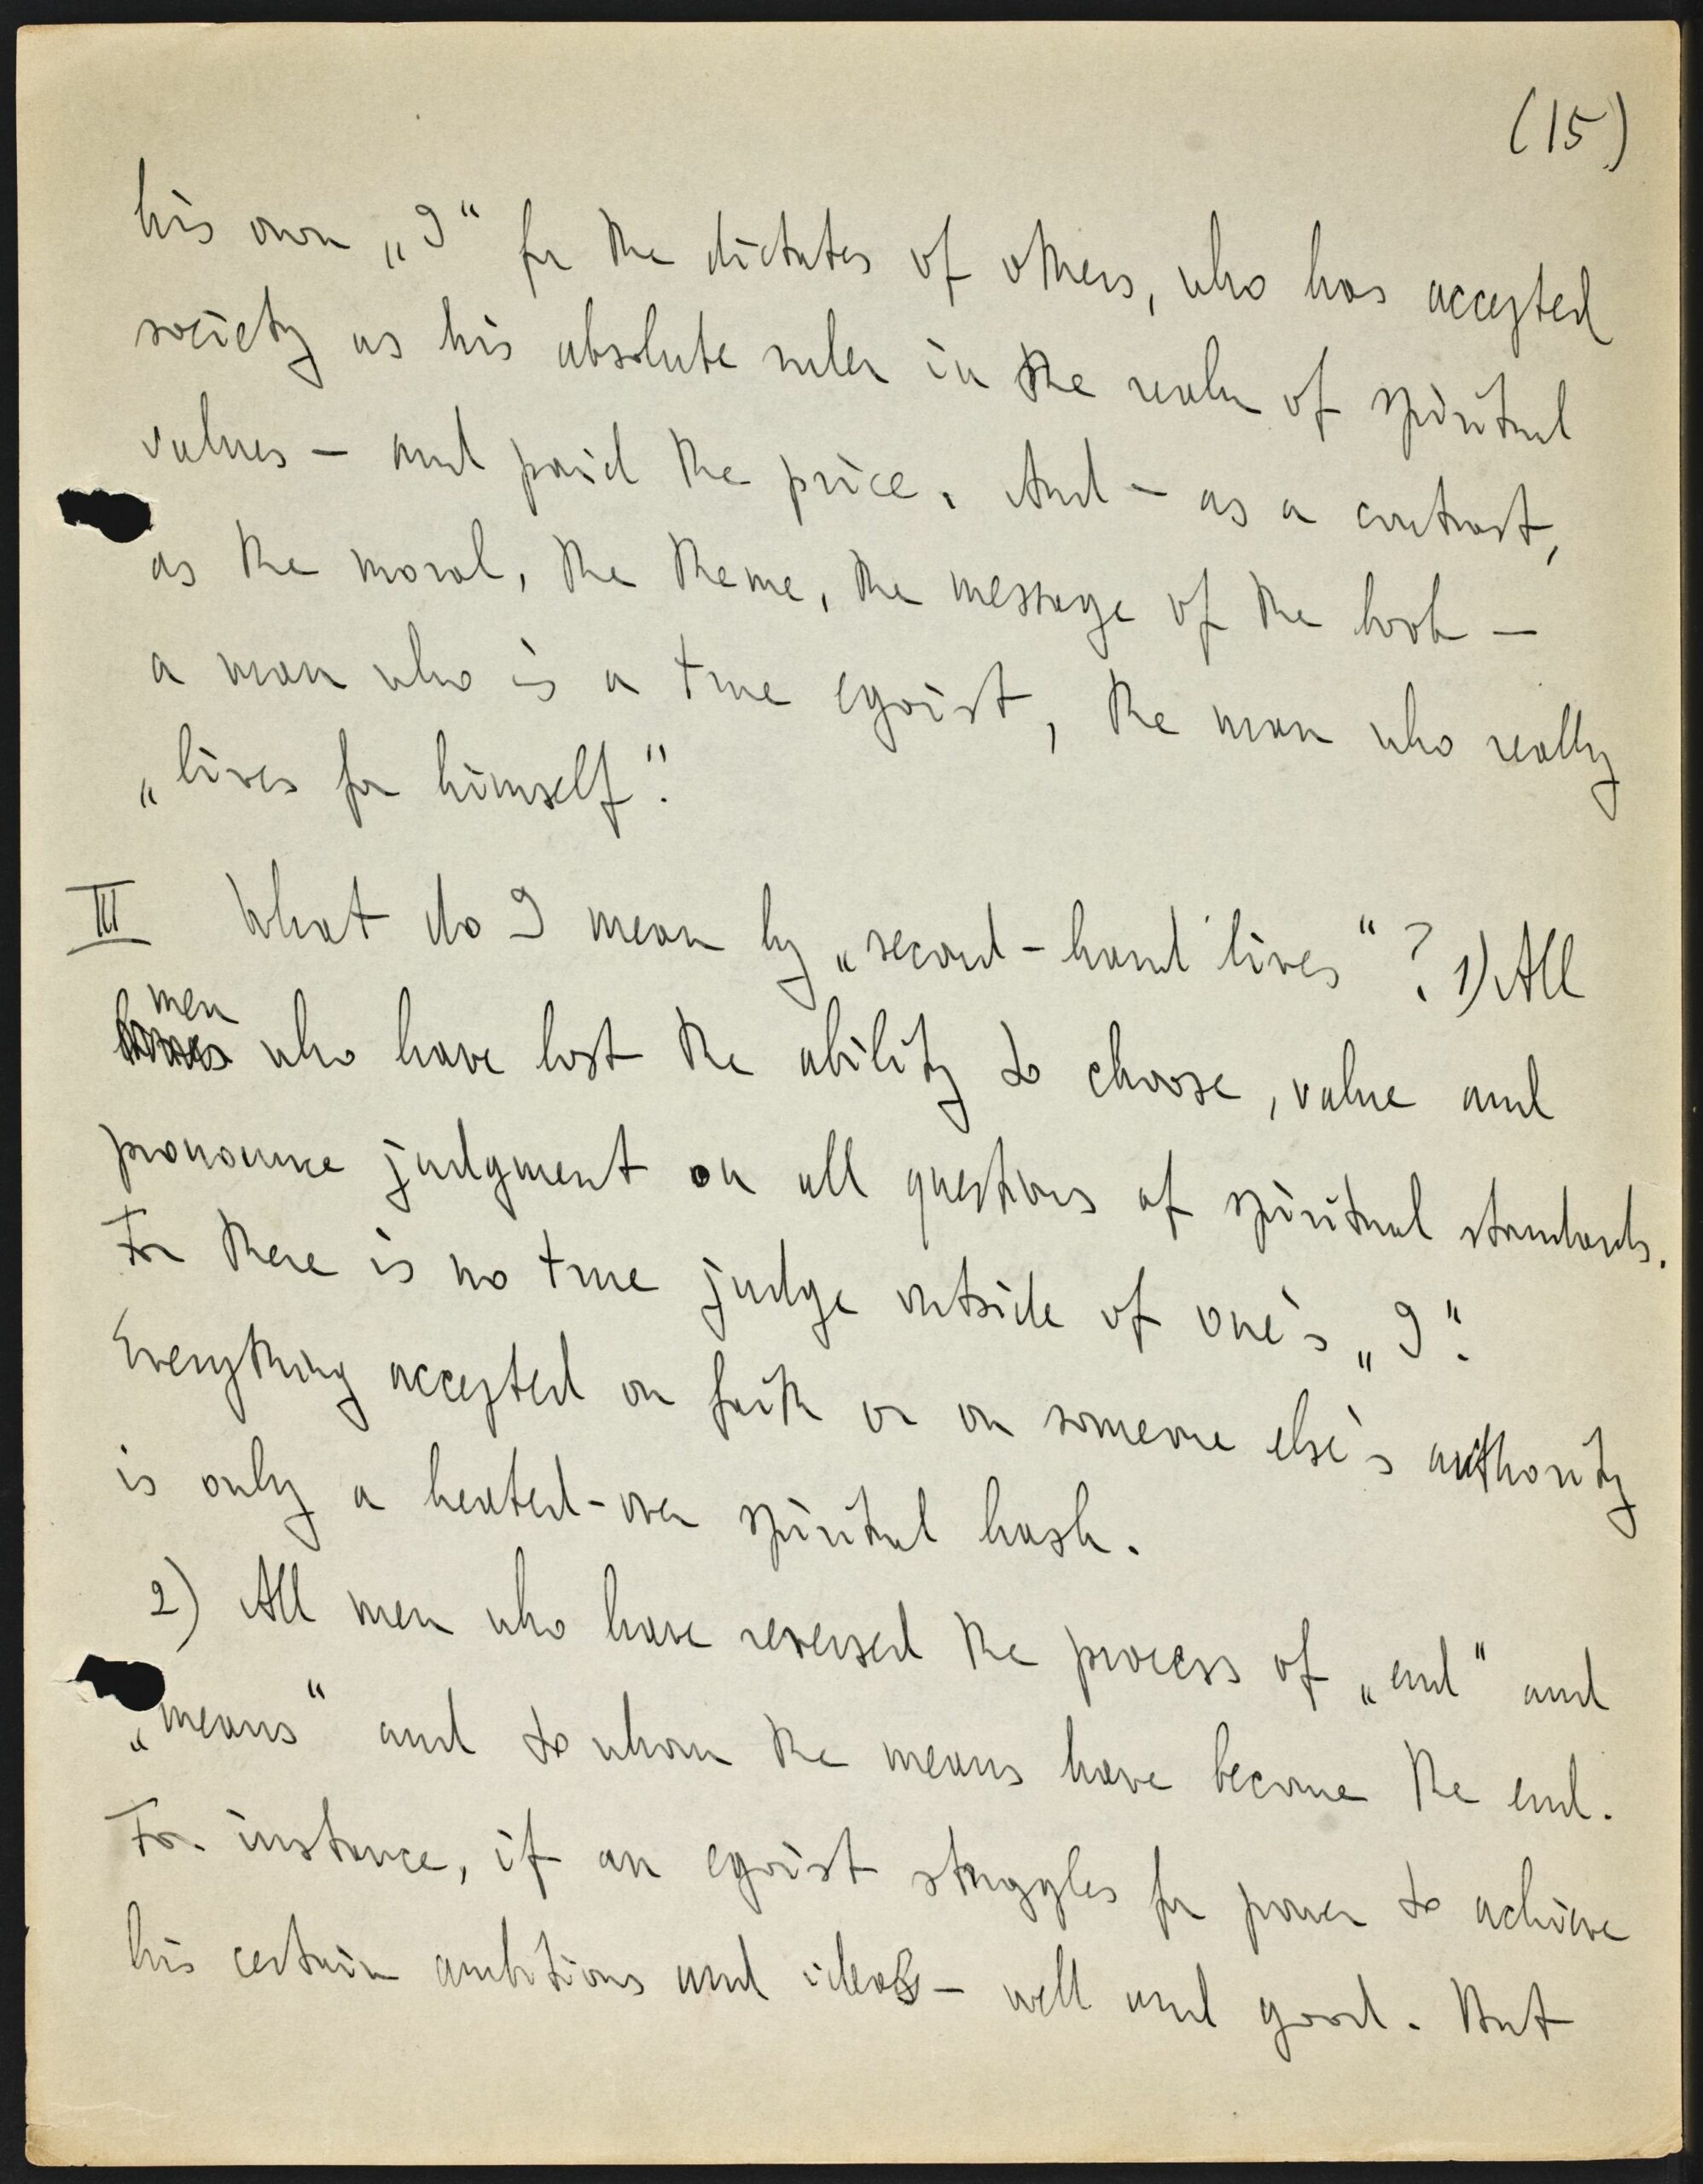 (15)
his own „I“ for the dictates of others, who has accepted
society as his absolute ruler in the realm of spiritual
values — and paid the price. And — as a contrast,
as the moral, the theme, the message of the book —
a man who is a true egoist, the man who really
„lives for himself“.
III What do I mean by „second-hand lives“? 1) All
men
who have lost the ability to choose, value and
pronounce judgment on all questions of spiritual standards.
For there is no true judge outside of one's „I“.
Everything accepted on faith or on someone else's authority
is only a heated-over spiritual hash.
2) All men who have reversed the process of „end“ and
„means“ and to whom the means have become the end.
For instance, if an egoist struggles for power to achieve
his certain ambitions and ideas — well and good. But